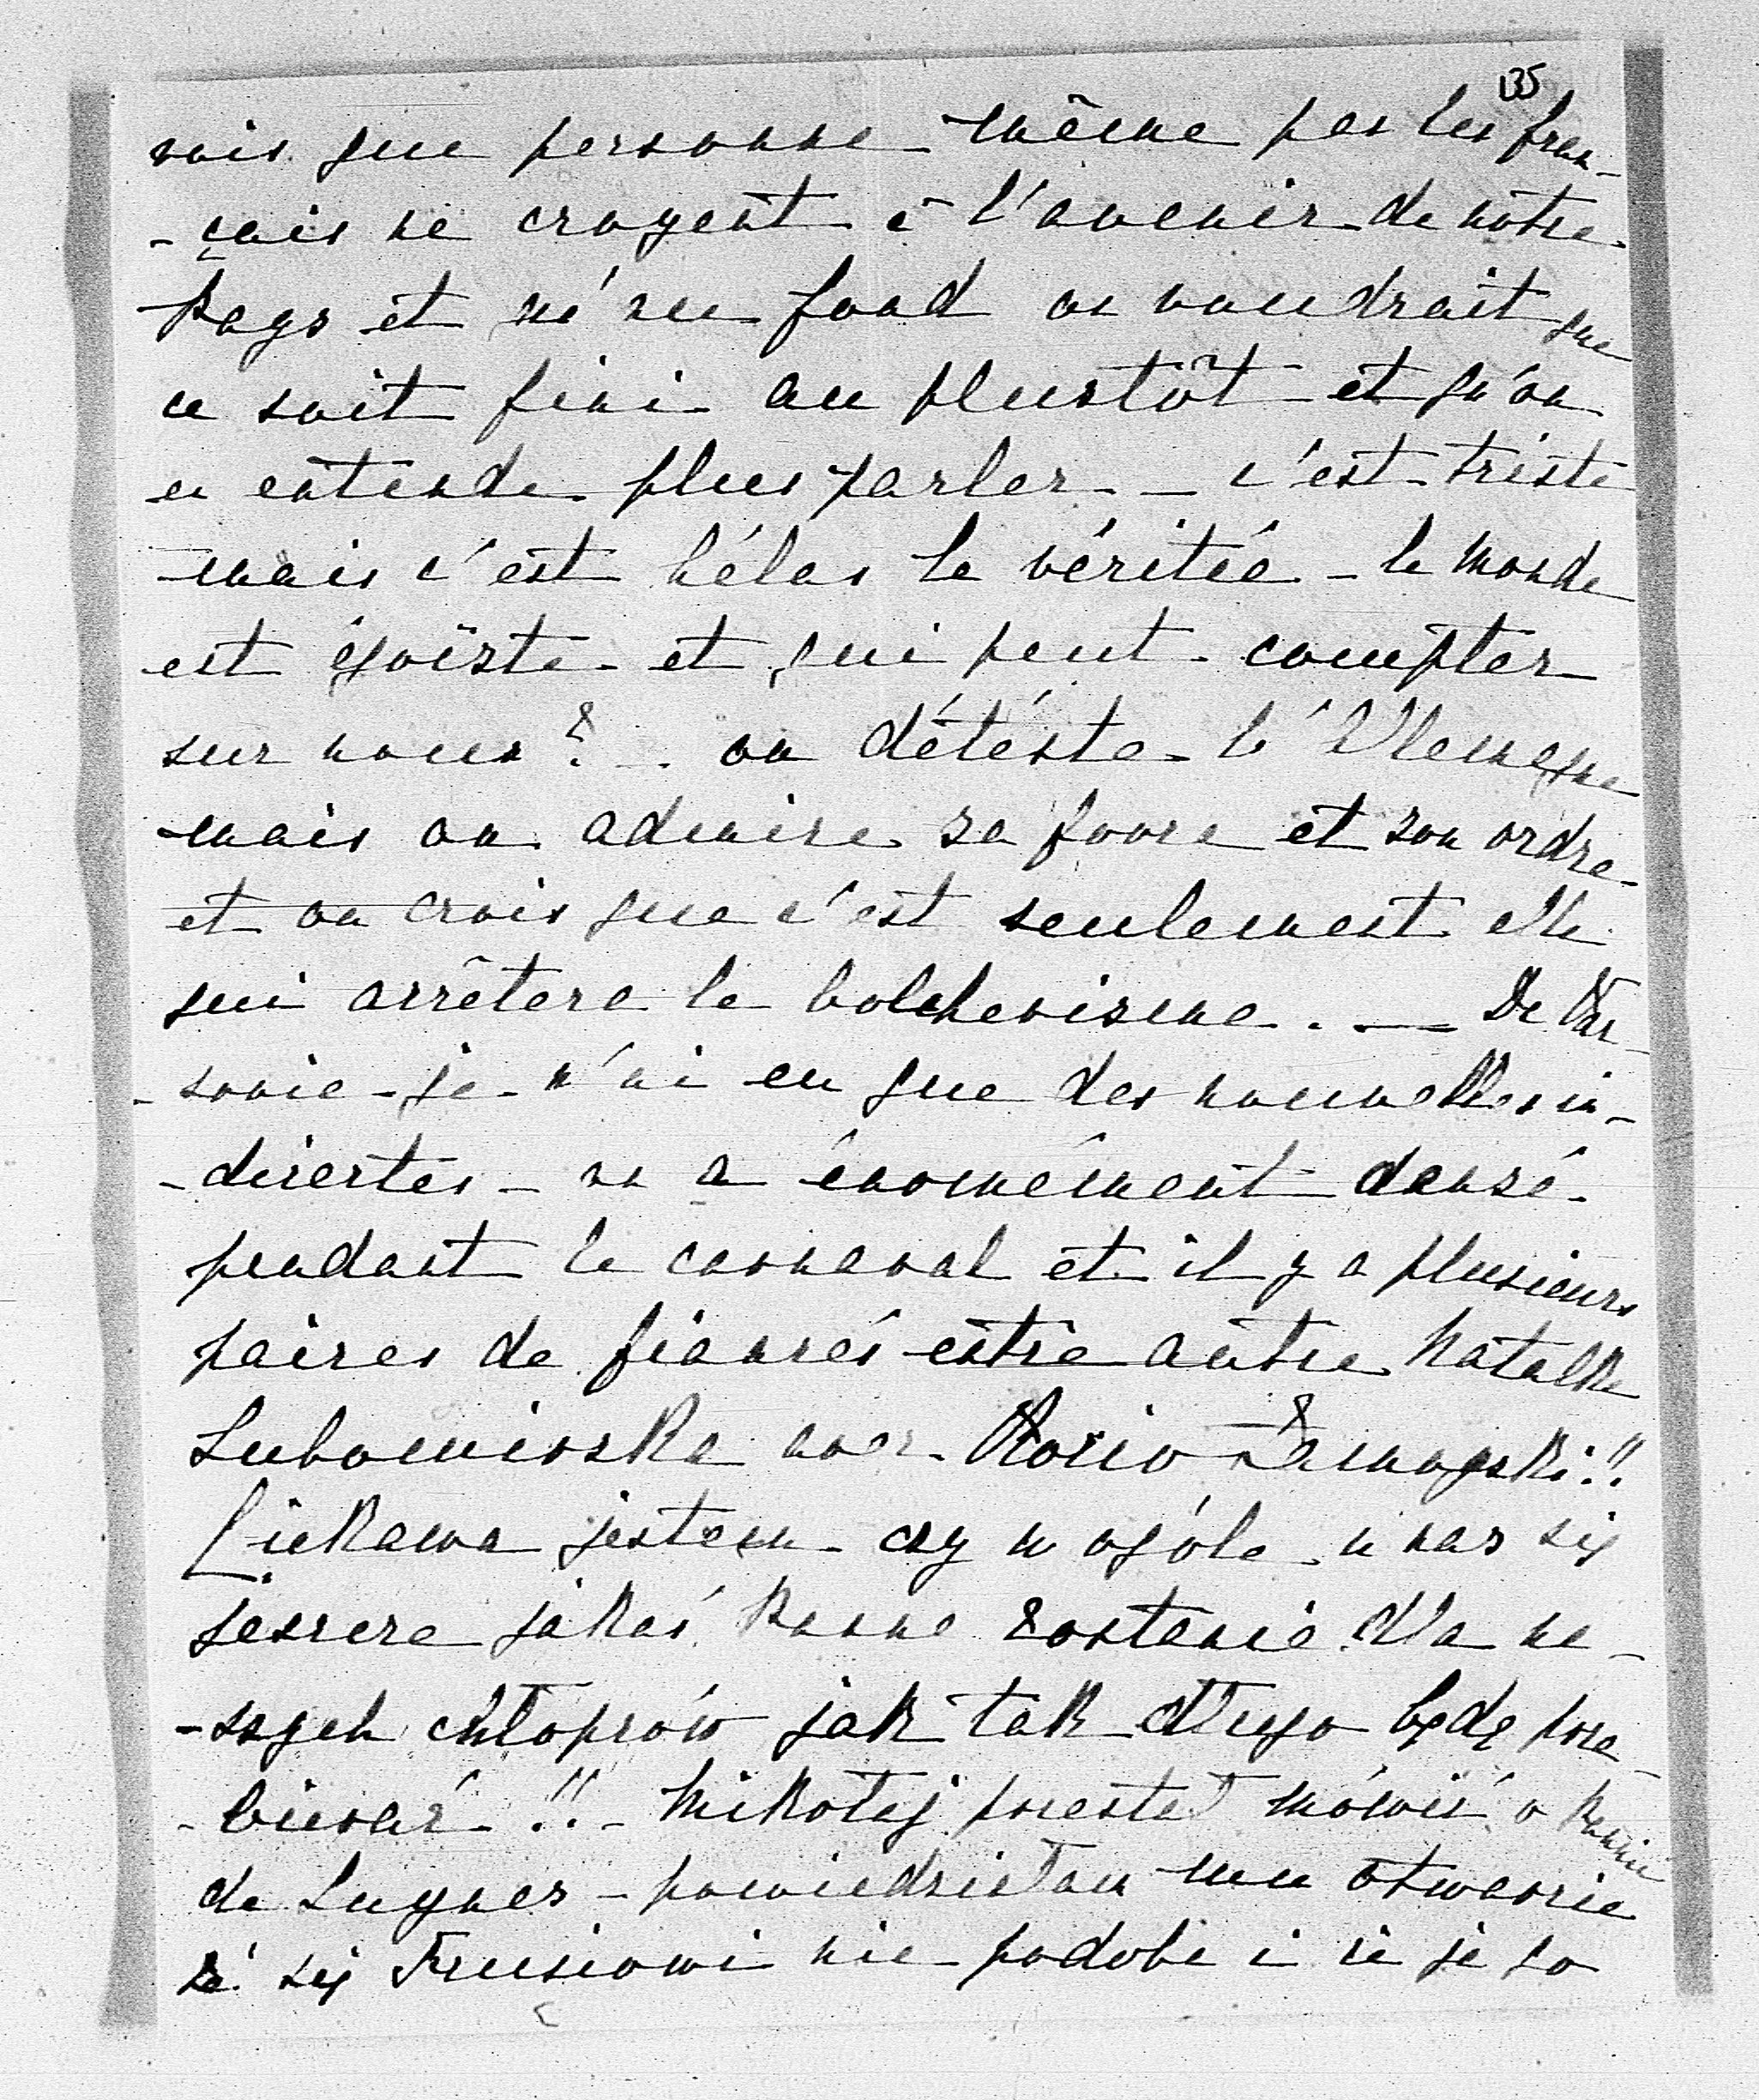 135
vois que personne même pas les fran-
-çais ne croyent à l'avenir de notre
Pays et qu'au fond on voudrait que
ce soit fini au plustôt et qu'on
en entende plus parler — c'est triste
mais c'est hélas la véritée — le monde
est égoïste et qui peut compter
sur nous? on détéste l'Allemagne
mais on admire sa force et son ordre
et on crois que c'est seulement elle
qui arrêtera le bolchevisme. — De Var-
-sovie je n'ai eu que des nouvelles in-
-directes — on a énormément dansé
pendant le carnaval et il y a plusieurs
paires de fiancés entre autre Natalka
Lubomirska avec Zamoyski!!
Ciekawa jestem czy w ogóle u nas się
jeszcze jakaś Panna zostanie dla na-
-szych chłopców jak tak długo będą prze-
-bierać !! — Mikołaj przestał mówić o Pannie
de Luynes — powiedziałam mu otwarcie
że się Frusiowi nie podoba i że ją to